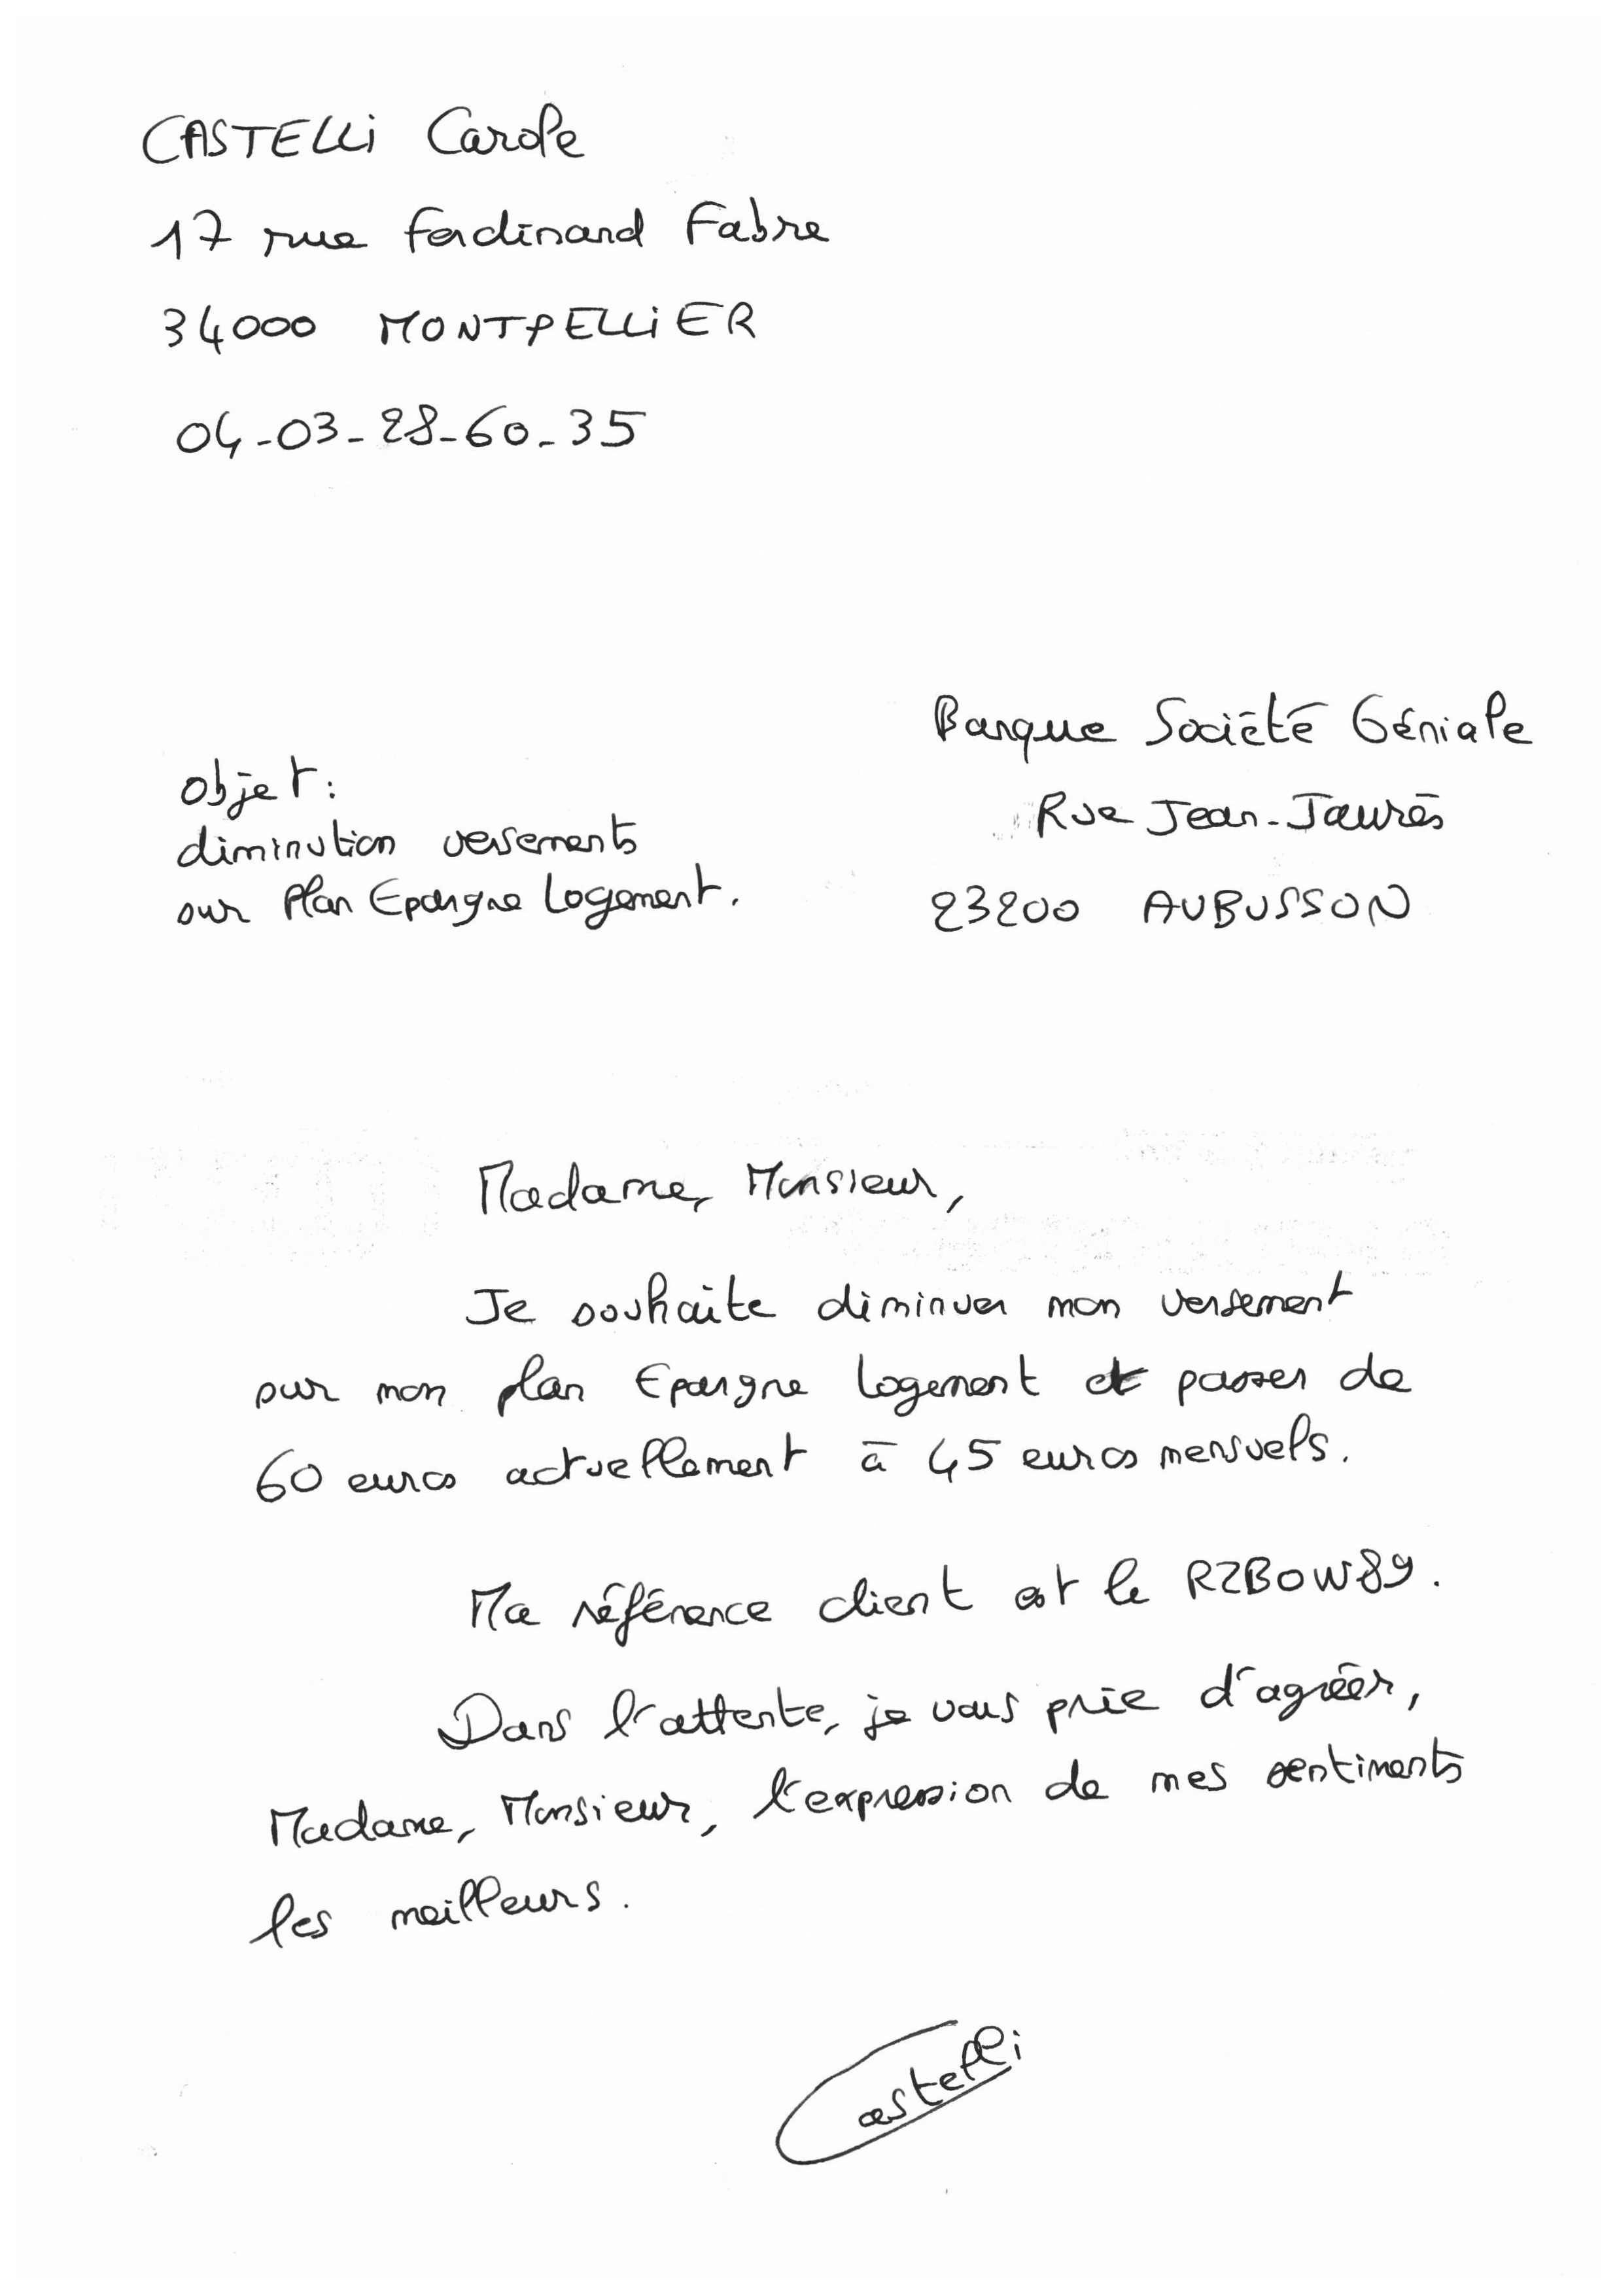 CASTELLi Carole
17 rue Ferdinand Fabre
34000 MONTPELLIER
04-03-28-60-35
Banque Société Géniale
Rue Jean-Jaurès
23200 AUBUSSON
Objet:
diminution versements
sur Plan Epargne Logement.
Madame, Monsieur,
Je souhaite diminuer mon versement
sur mon plan Epargne Logement et passer de
60 euros actuellement à 45 euros mensuels.
Ma référence client est le RZBOW89.
Dans l'attente, je vous prie d'agréer,
Madame, Monsieur, l'expression de mes sentiments
les meilleurs.
Castelli